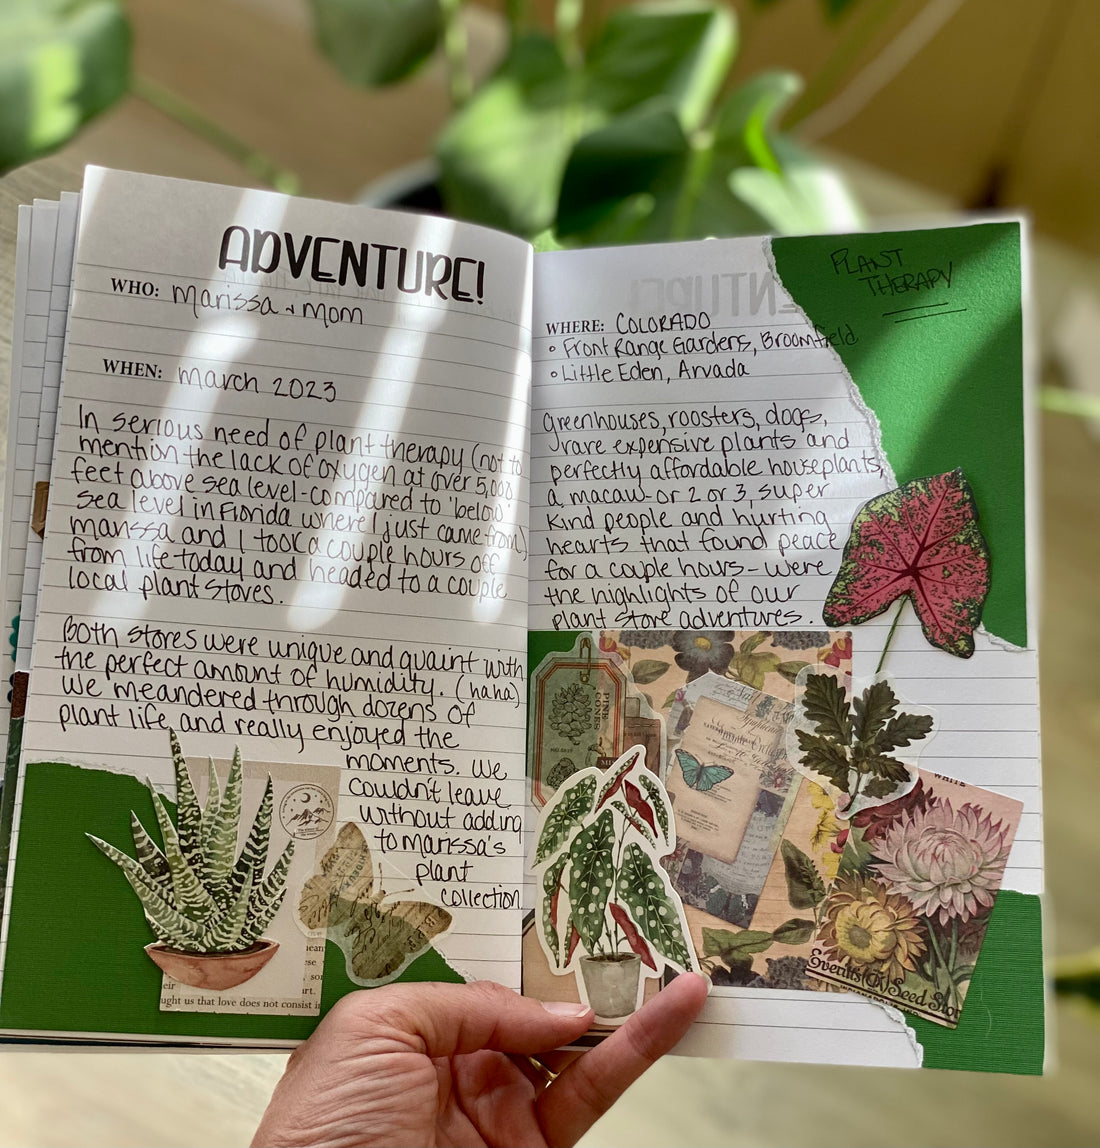 ADVENTURE!
WHO: Marissa + Mom
WHEN: March 2023
In serious need of plant therapy (not to
mention the lack of oxygen at over 5,000
feet above sea level - compared to 'below'
sea level in Florida where I just came from)
Marissa and I took a couple hours off
from life today and headed to a couple
local plant stores.
Both stores were unique and quaint with
the perfect amount of humidity. (haha)
We meandered through dozens of
plant life, and really enjoyed the
moments. We
couldn't leave
without adding
to Marissa's
plant
collection.
ught us that love does not consist i
PLANT
THERAPY
WHERE: COLORADO
• Front Range Gardens, Broomfield
• Little Eden, Arvada
Greenhouses, roosters, dogs,
rare expensive plants and
perfectly affordable houseplants,
a macaw - or 2 or 3, super
kind people and hurting
hearts that found peace
for a couple hours - were
the highlights of our
plant store adventures.
PINE
CONES
WHITE
Everitt's Seed Stor
INDIANAPOLIS